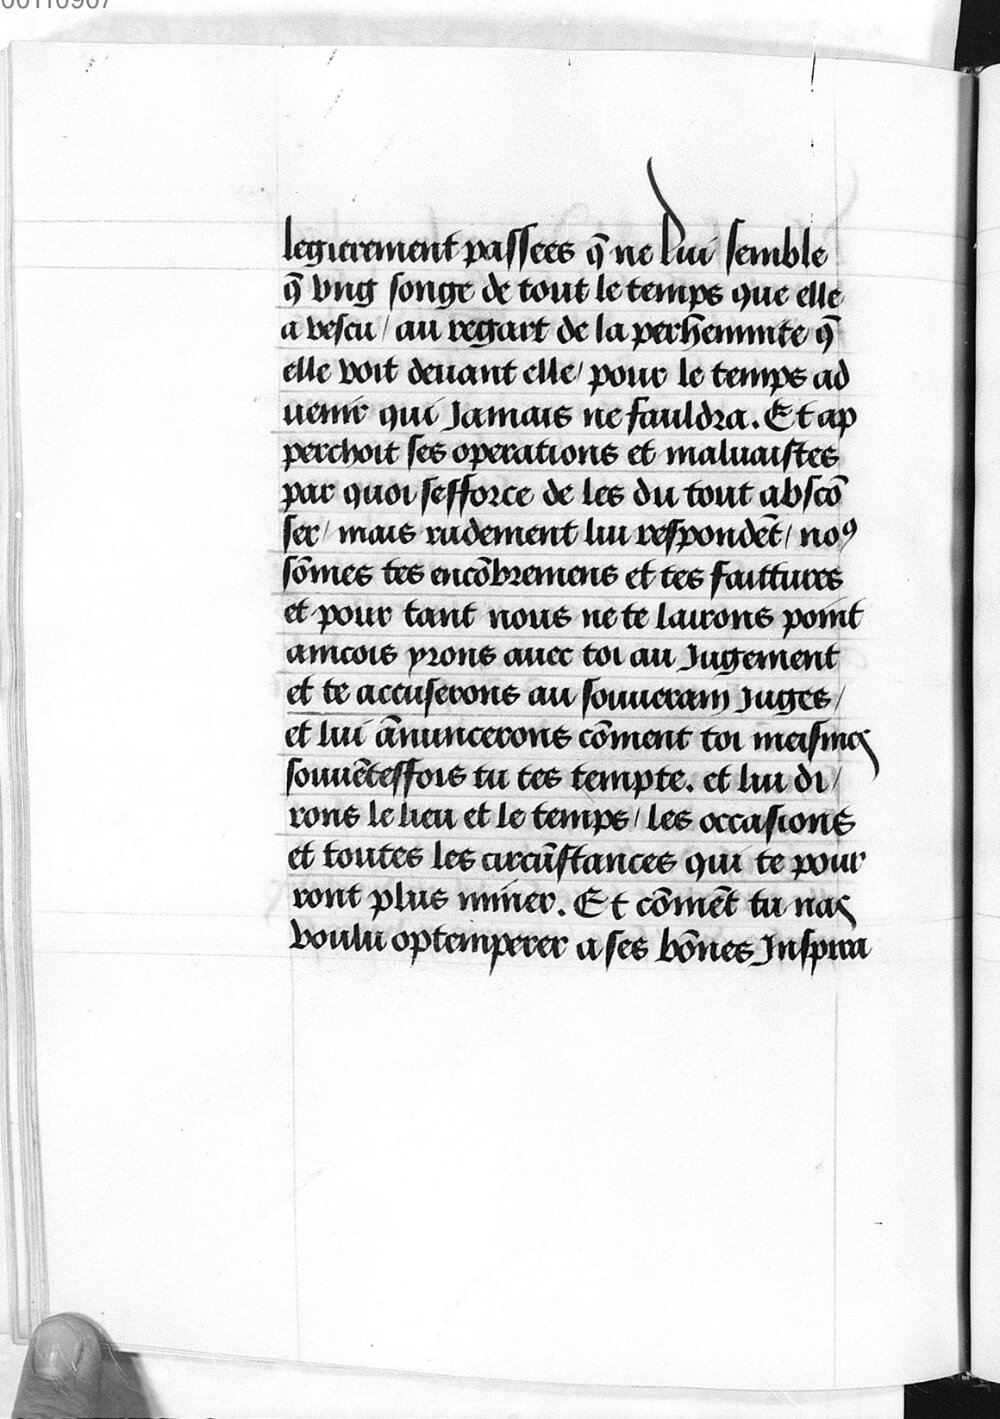 00110907
legierement passees q̄ ne lui semble
q̄ vng songe de tout le temps que elle
a vescu / au regart de la perhennite q̄
elle voit deuant elle / pour le temps ad
uenir qui Jamais ne fauldra. Et ap
perchoit ses operations et maluaistes
par quoi sefforce de les du tout abscō
ser / mais rudement lui respondēt / noꝰ
sōmes tes encōbremens et tes faittures
et pour tant nous ne te lairons point
aincois yrons auec toi au Jugement
et te accuserons au souuerain Juges /
et lui ānuncerons cōment toi meismes
souuētesfois tu tes tempte. et lui di /
rons le lieu et le temps / les occasions
et toutes les circūstances qui te pour
ront plus miner. Et cōmēt tu nas
voulu optemperer a ses bōnes Inspira